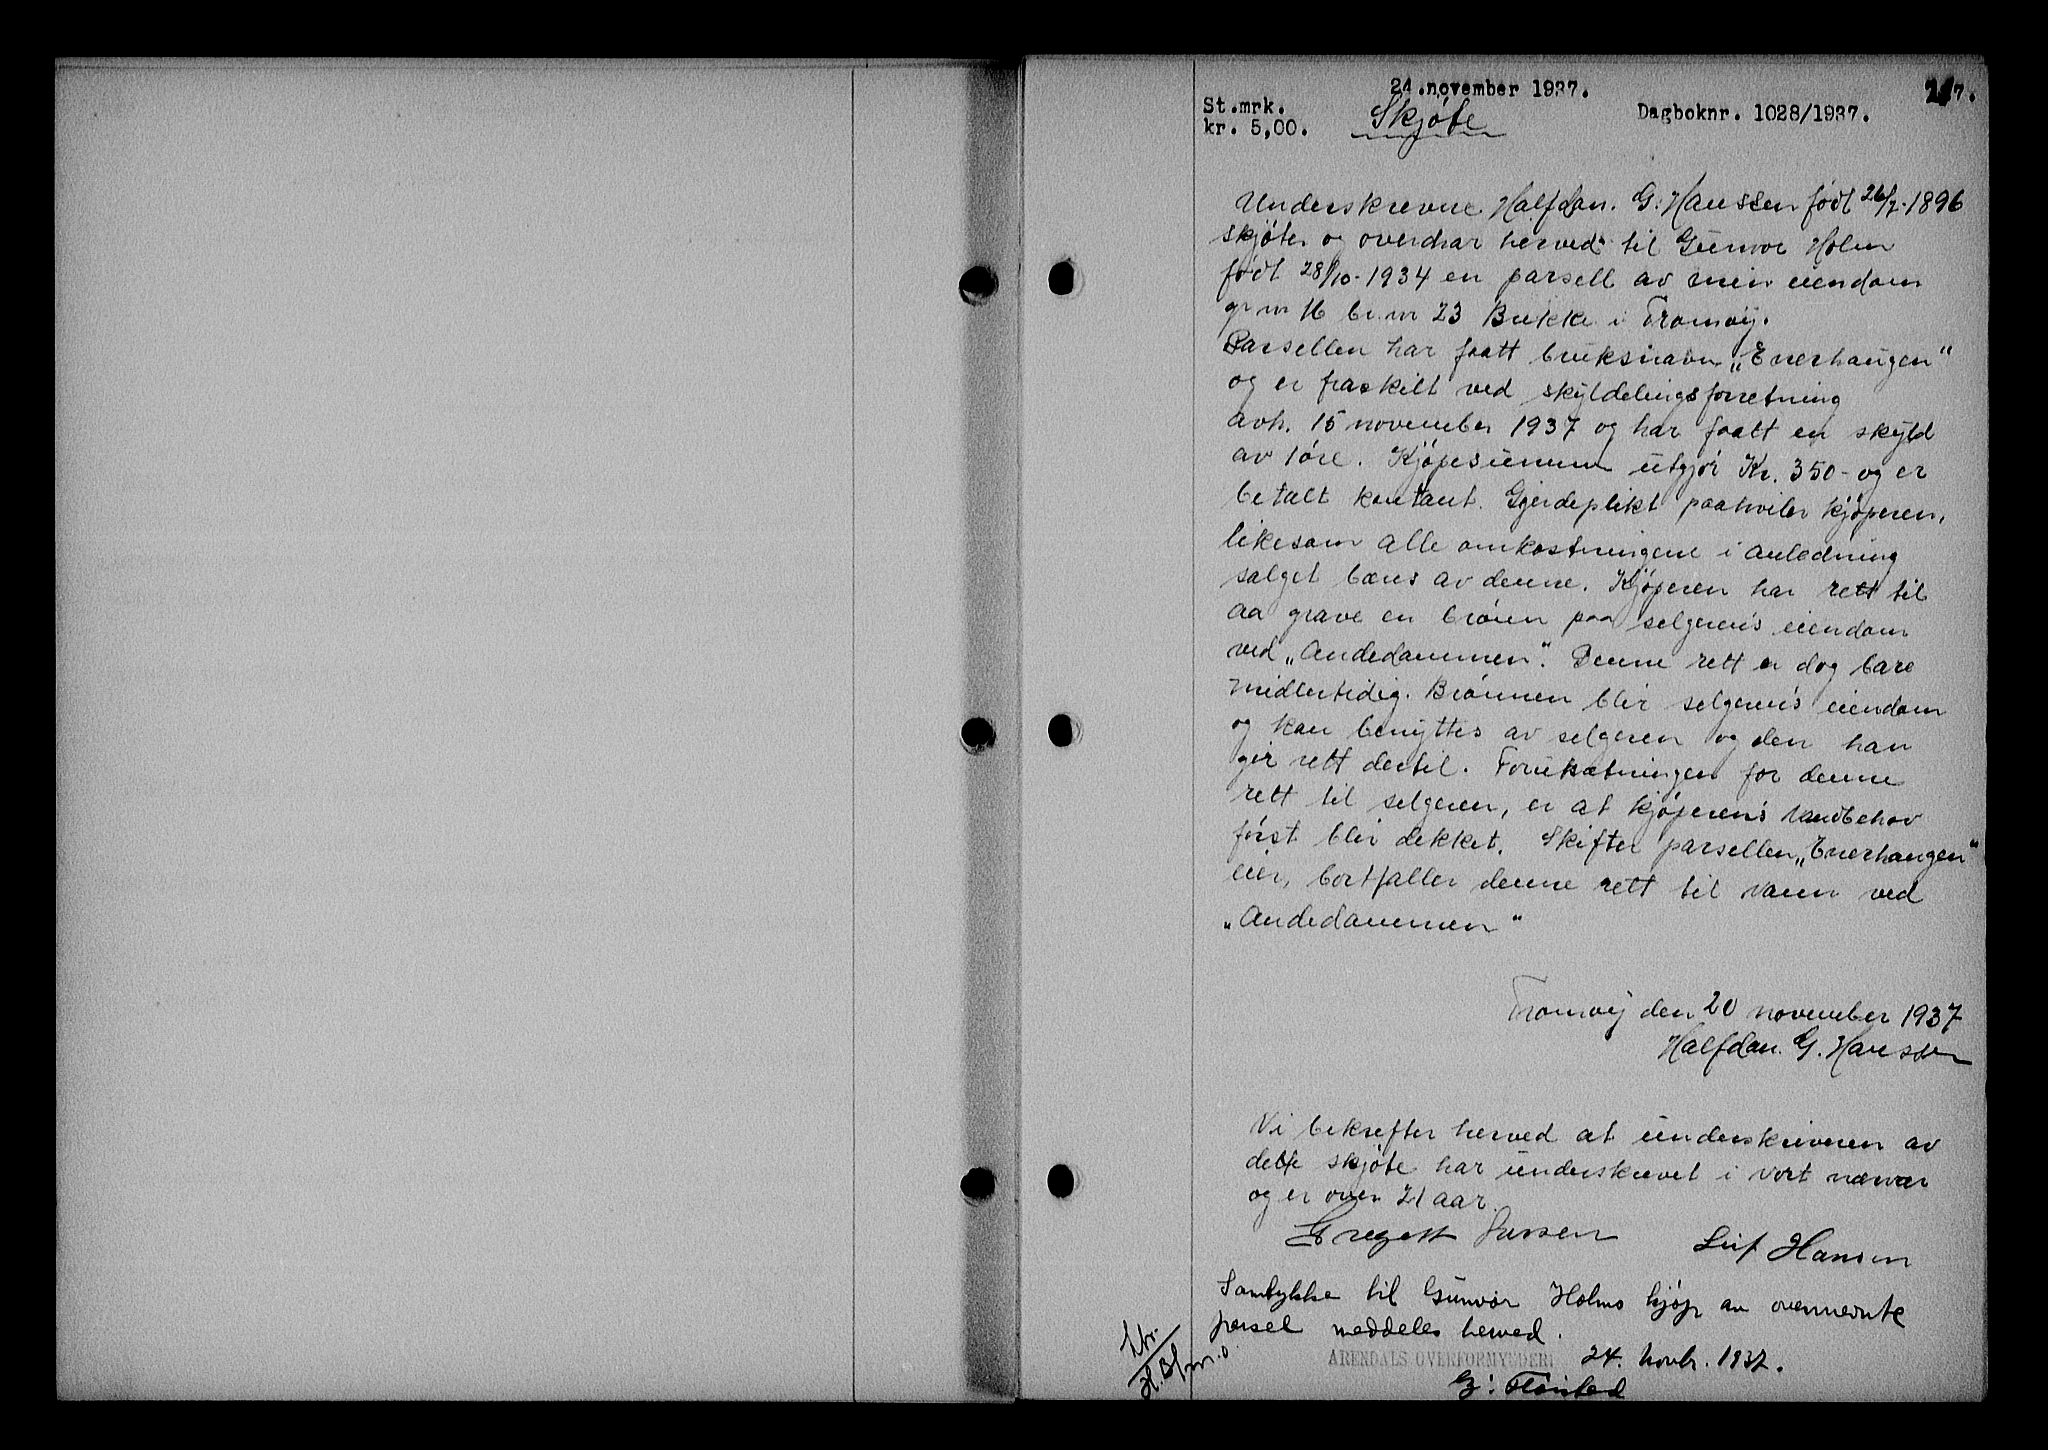 24.november 1937.
St.mrk.
kr. 5,00.
Skjøte
Dagboknr. 1028/1937.
Underskrevne Halfdan. G. Hanssen født 26/7-1896
skjøter og overdrar herved til Gunvor Holm
født 28/10-1934 en parsell av min eiendom
gr nr 16 br.nr 23 Brekke i Tromøy.
Parsellen har faatt bruksnavn „Enerhaugen“
og er fraskilt ved skyldelingsforretning
avh. 15 november 1937 og har faatt en skyld
av 1 øre. Kjøpesummen utgjør Kr. 350- og er
betalt kontant. Gjerdeplikt paahviler kjøperen,
likesom alle omkostningene i anledning
salget bæres av denne. Kjøperen har rett til
aa grave en brønn paa selgerens eiendom
ved „Andedammen“. Denne rett er dog bare
midlertidig. Brønnen blir selgerens eiendom
og kan benyttes av selgeren og den han
gir rett dertil. Forutsætningen for denne
rett til selgeren, er at kjøperens vandbehov
først blir dekket. Skifter parsellen „Enerhaugen“
eier, bortfaller denne rett til vann ved
„Andedammen“
Tromøy den 20 november 1937
Halfdan. G. Hanssen
Vi bekrefter herved at underskriveren av
dette skjøte har underskrevet i vort nærvær
og er over 21 aar.
Leif Hansen
Samtykke til Gunvor Holms kjøp av ovennevnte
parsel meddeles herved.
ARENDALS OVERFORMYNDERI 24. novbr. 1937.